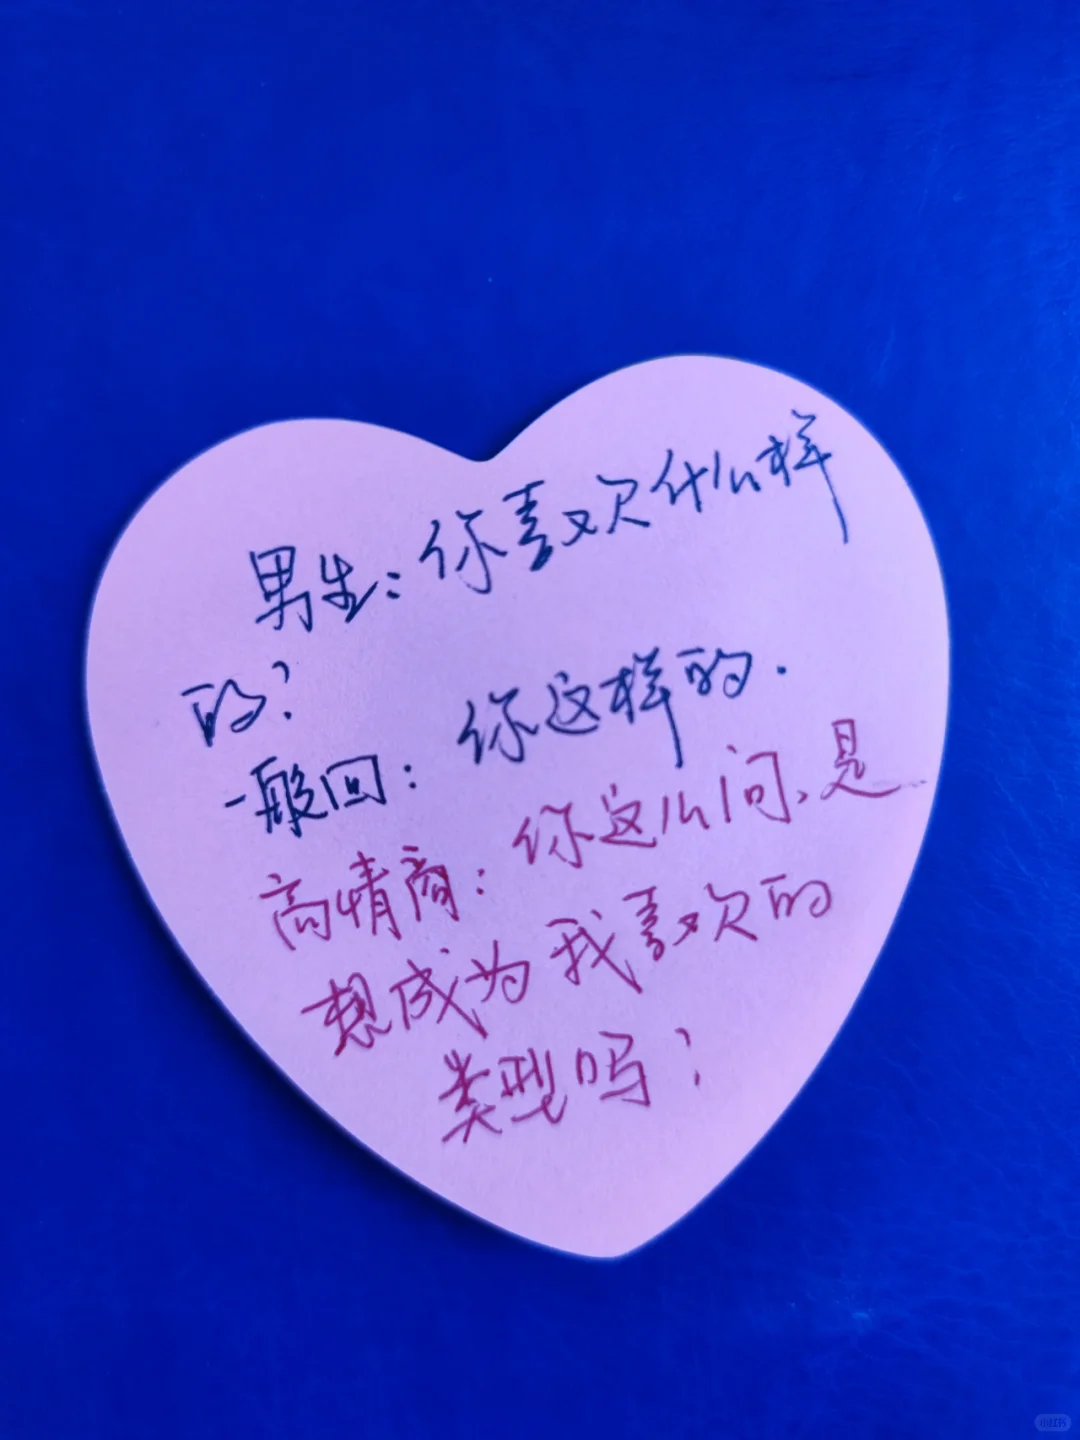 男生：你喜欢什么样
的？
一般回：你这样的.
高情商：你这么问、是
想成为我喜欢的
类型吗？
小红书